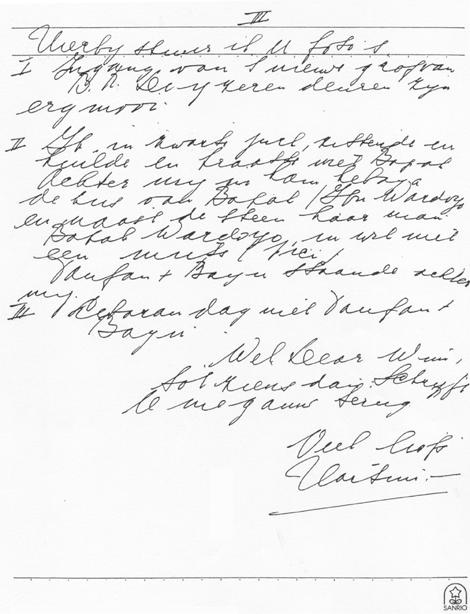 III
Hierby stuur ik U foto's
I Ingang van 't nieuwe graf van
B.K. De yzeren deuren zyn
erg mooi
II Ik, in zwarte juk, zittende en
huilde en praatte met Bapak
Achter my
de zus van Bapak / Ibu Wardoyo
en naast de steen haar man
Bapak Wardoyo, in wit met
een muts (pici)
Taufan + Bayu staande achter
my.
III Lebaran dag met Taufan +
Bayu
Wel Dear Wim,
tot ziens dan. Schryft
U me gauw terug
Veel liefs
Hartini
SANRIO